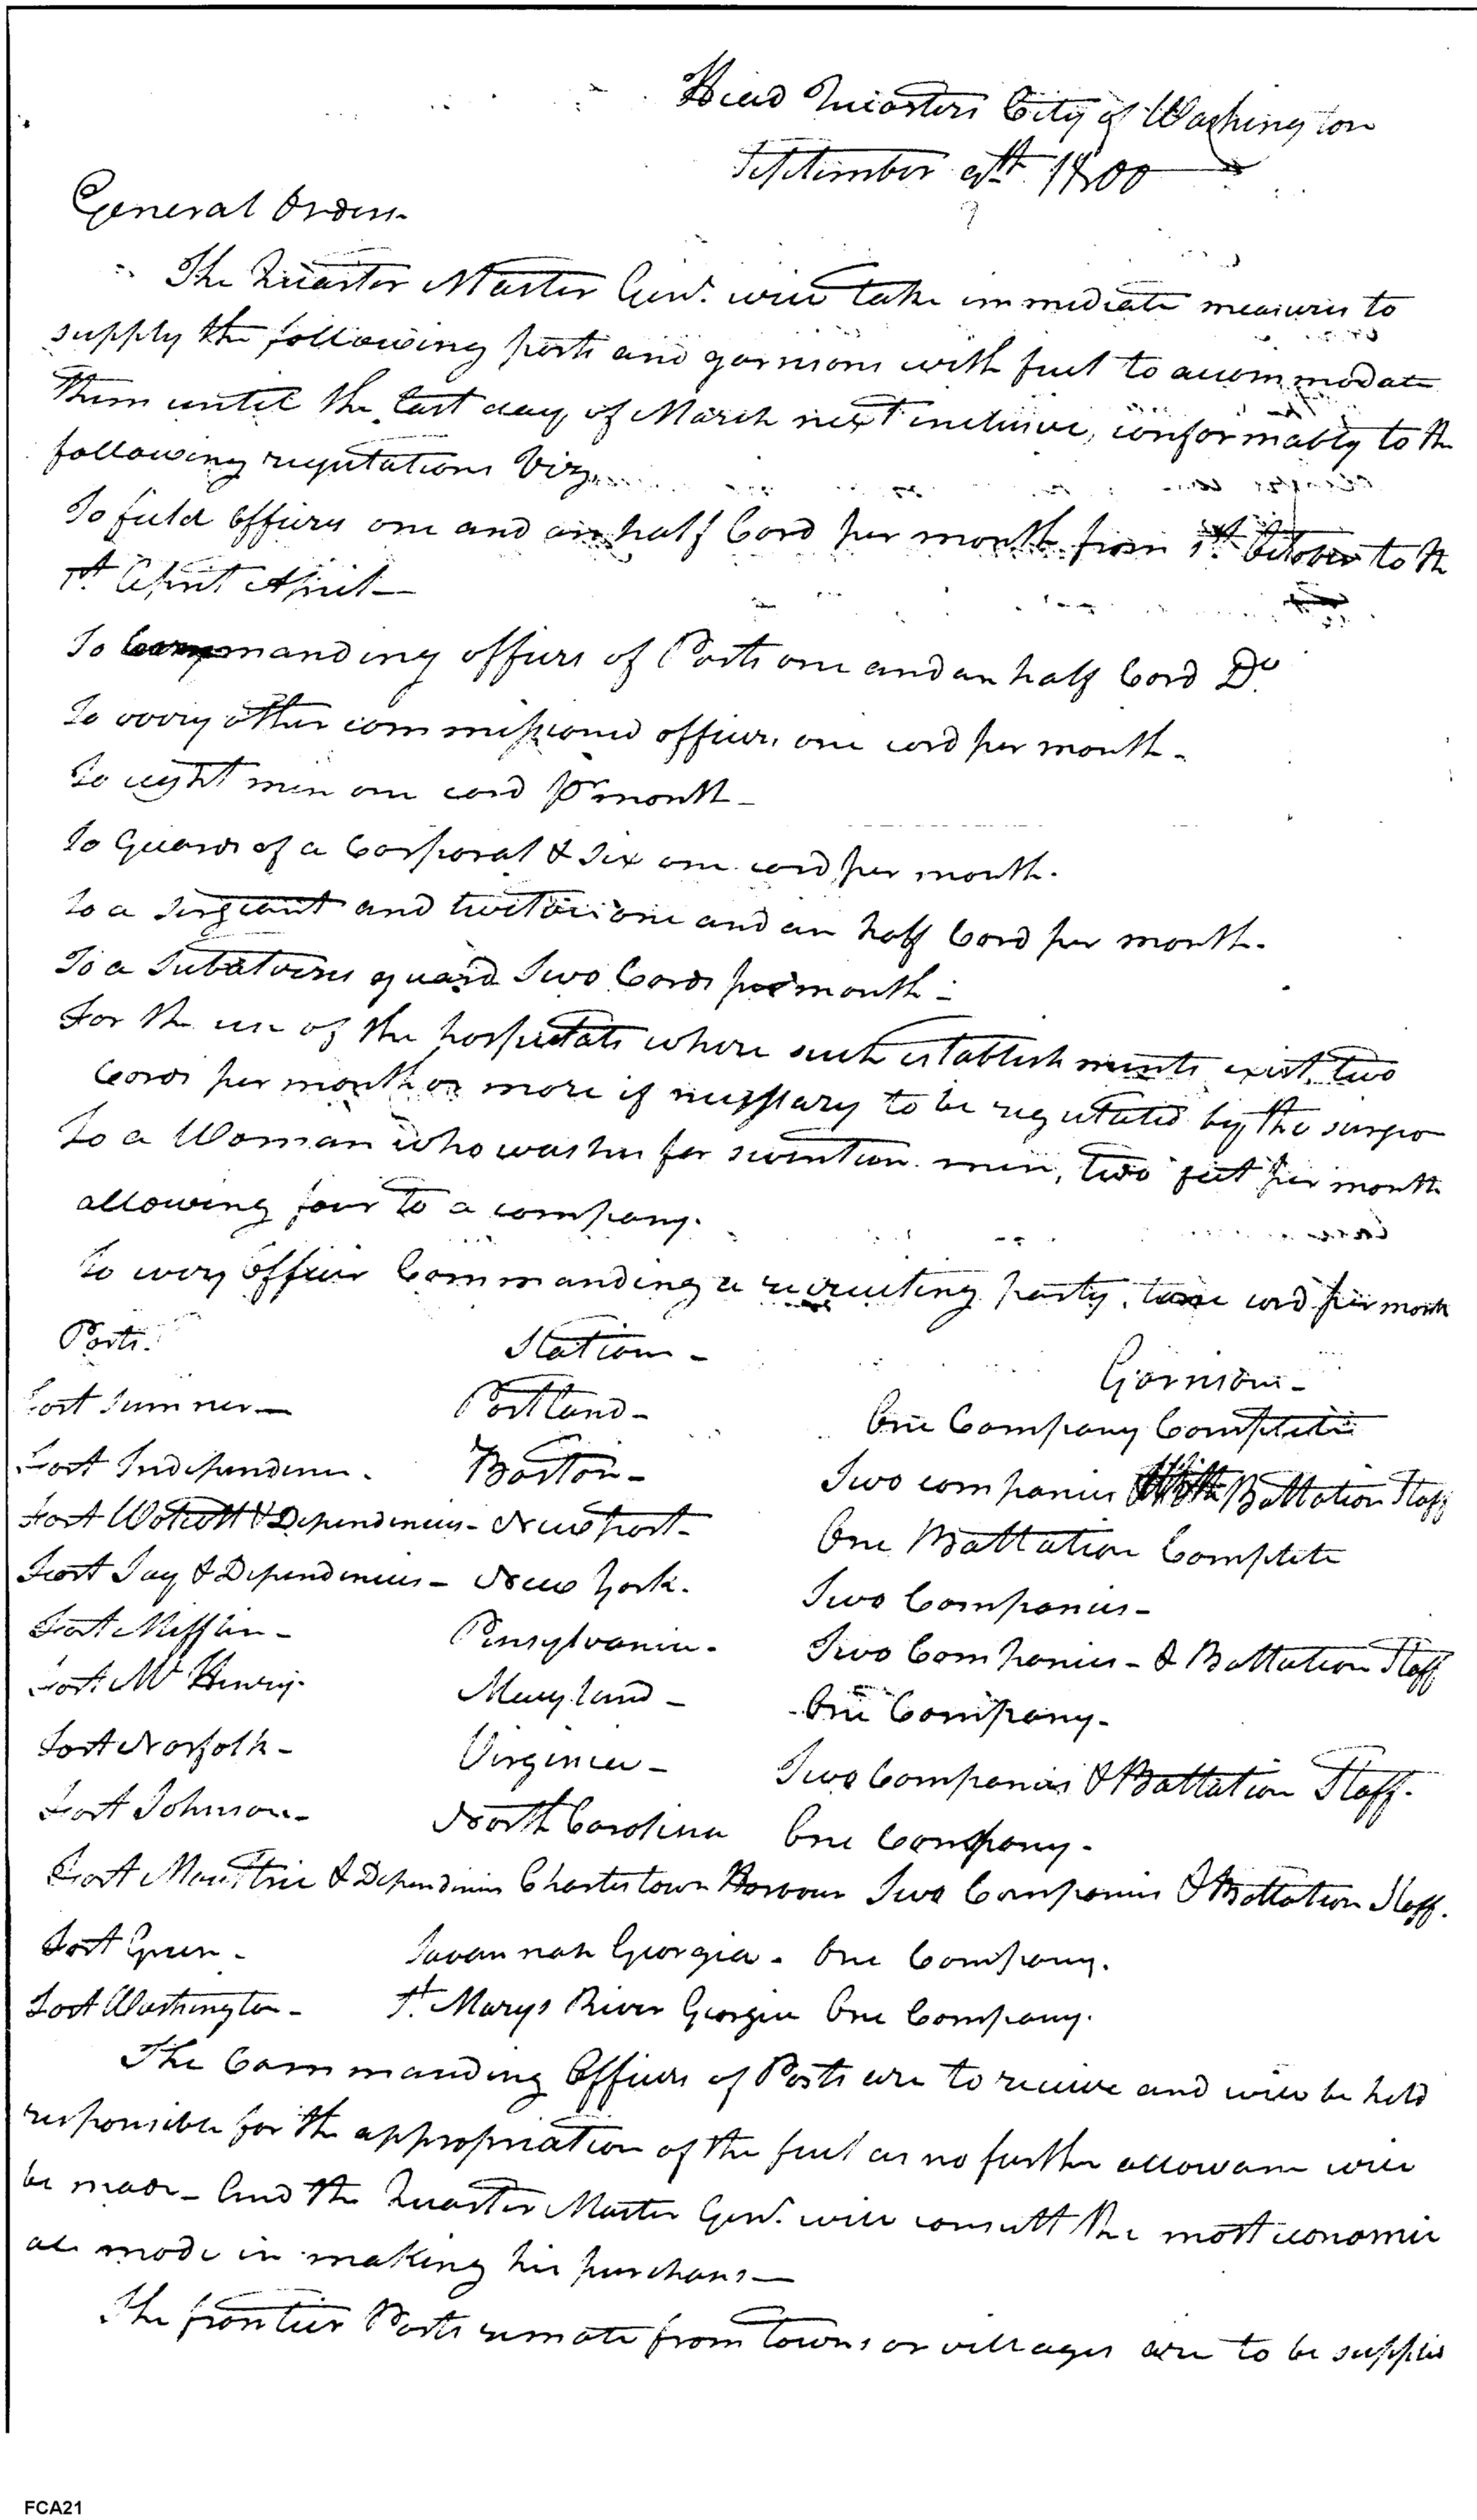 Head Quarters City of Washington
September 9th 1800
General Orders
The Quarter Master Genl. will take immediate measures to
supply the following posts and garrisons with fuel to accommodate
them until the last day of March next inclusive, conformably to the
following regulations Viz
To field officers one and an half Cord per month from 1st October to the
1st April April
To Commanding officers of Posts one and an half Cord Do.
To every other commissioned officer, one cord per month -
To eight men one cord pr month -
To Guards of a Corporal & Six one cord per month.
To a Sergeant and twelve one and an half Cord per month.
To a Subalterns guard Two Cords per month -
For the use of the hospitals where such establishments exist, two
Cords per month or more if necessary to be regulated by the surgeo
To a Woman who washes for seventeen men, two feet per month
allowing four to a company.
To every officer Commanding a recruiting party, one cord per month
Posts.
Stations -
Garrisons -
Fort Sumner - Portland - One Company Complete
Fort Independence - Boston - Two companies With Battalion Staff
Fort Wolcott & Dependencies - Newport - One Battalion Complete
Fort Jay & Dependencies - New York. Two Companies -
Fort Mifflin - Pensylvania - Two Companies - & Battalion Staff
Fort Mc Henry - Maryland - One Company -
Fort Norfolk - Virginia - Two Companies & Battalion Staff.
Fort Johnson - North Carolina One Company -
Fort Moultrie & Dependencies Charlestown Harbour Two Companies & Battalion Staff.
Fort Green - Savannah Georgia - One Company.
Fort Washington - St. Marys River Georgia One Company.
The Commanding Officers of Posts are to receive and will be held
responsible for the appropriation of the fuel as no further allowance will
be made - And the Quarter Master Genl. will consult the most economic
al mode in making his purchases -
The frontier Posts remote from towns or villages are to be supplied
FCA21